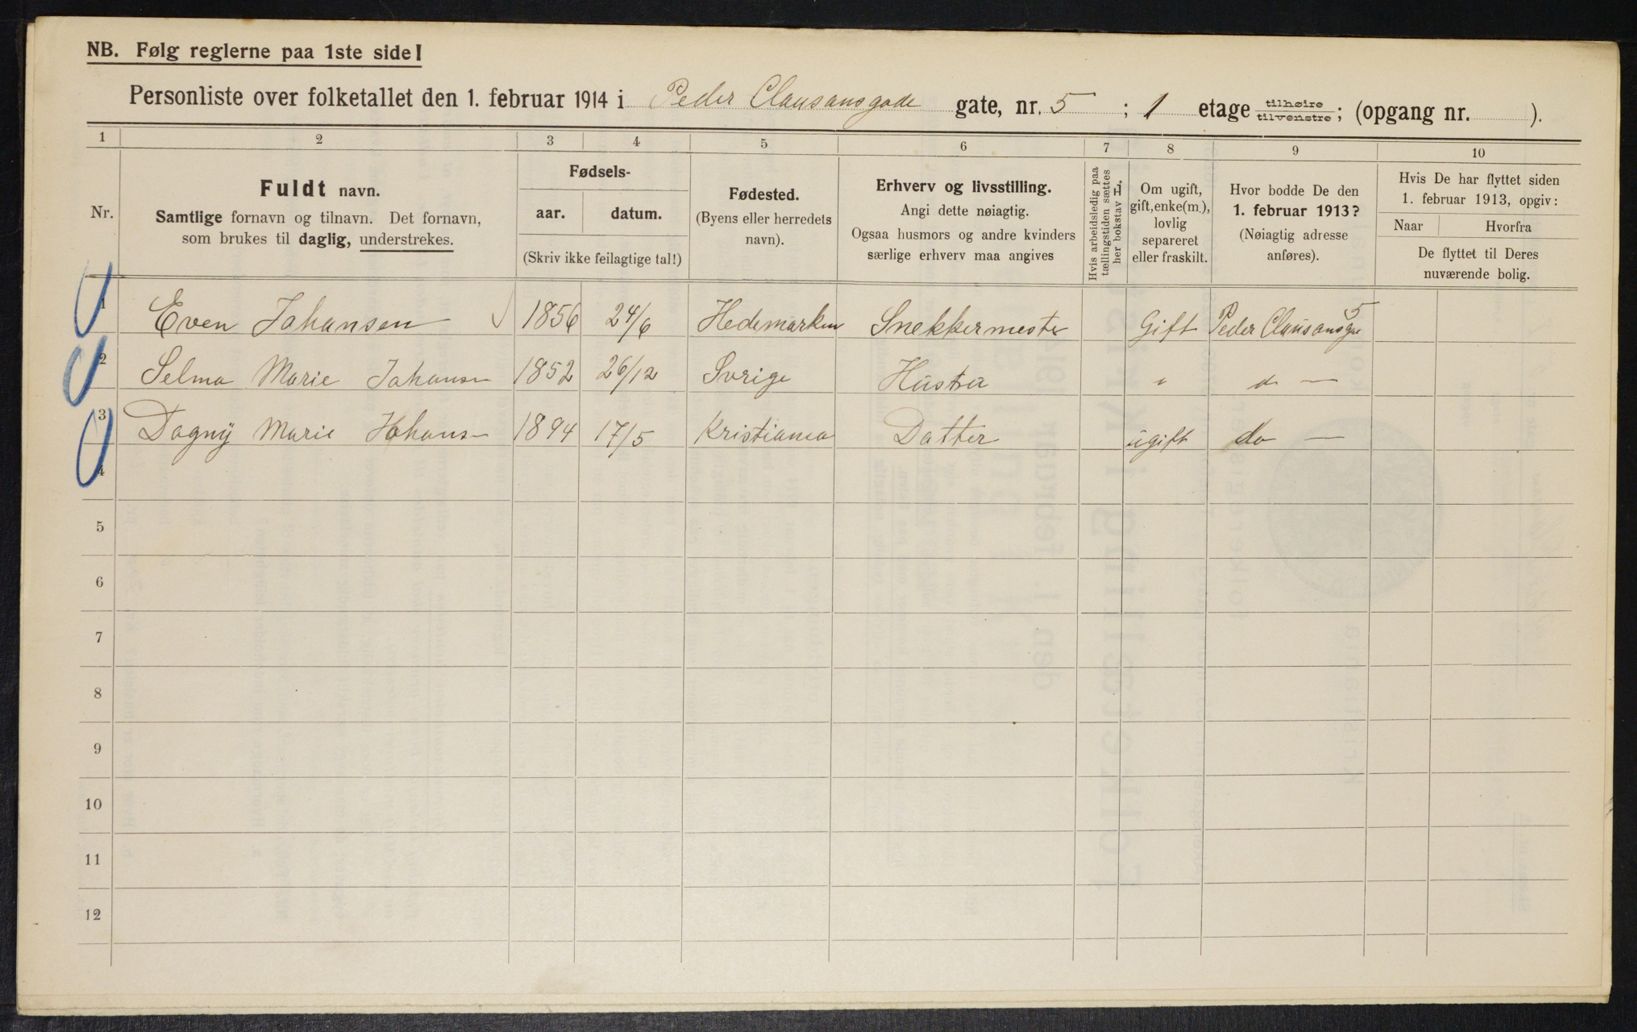 NB. Følg reglerne paa 1ste side!
Personliste over folketallet den 1. februar 1914 i Peder Clausansgade gate, nr. 5 ; 1 etage tilhøire tilvenstre; (opgang nr. ).
1 2 3 4 5 6 7 8 9 10
Nr.
Fuldt navn.
Samtlige fornavn og tilnavn. Det fornavn,
som brukes til daglig, understrekes.
Fødsels-
aar. datum.
(Skriv ikke feilagtige tal!)
Fødested.
(Byens eller herredets
navn).
Erhverv og livsstilling.
Angi dette nøiagtig.
Ogsaa husmors og andre kvinders
særlige erhverv maa angives
Hvis arbeidsledig paa
tællingstiden sættes
her bokstav L.
Om ugift,
gift, enke(m.),
lovlig
separeret
eller fraskilt.
Hvor bodde De den
1. februar 1913?
(Nøiagtig adresse
anføres).
Hvis De har flyttet siden
1. februar 1913, opgiv:
Naar Hvorfra
De flyttet til Deres
nuværende bolig.
1 Even Johansen 1856 24/6 Hedemarken Snekkermester Gift Peder Clausansge 5
2 Selma Marie Johansn 1852 26/12 Svrige Hustru " d —
3 Dagny Marie Johansn 1894 17/5 Kristiania Datter ugift do —
4
5
6
7
8
9
10
11
12